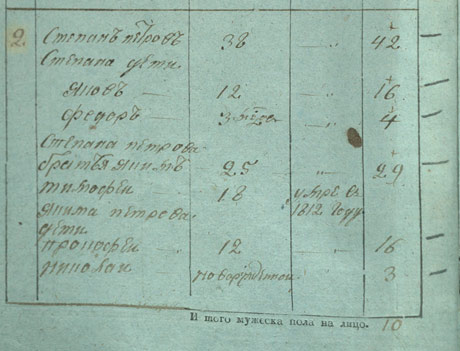 2 Степанъ петровъ 38 — „ 42 —
Степана дѣти
яковъ — 12 — „ 16 —
федоръ — 3 — „ 4 —
Степана петрова
братья якимъ 25 — „ 29 —
тимофеи 18 умре въ
1812 году
якима петрова
дѣти
12 — „ 16 —
николаи новорожденнои — „ 3 —
И того мужеска пола на лицо. 10